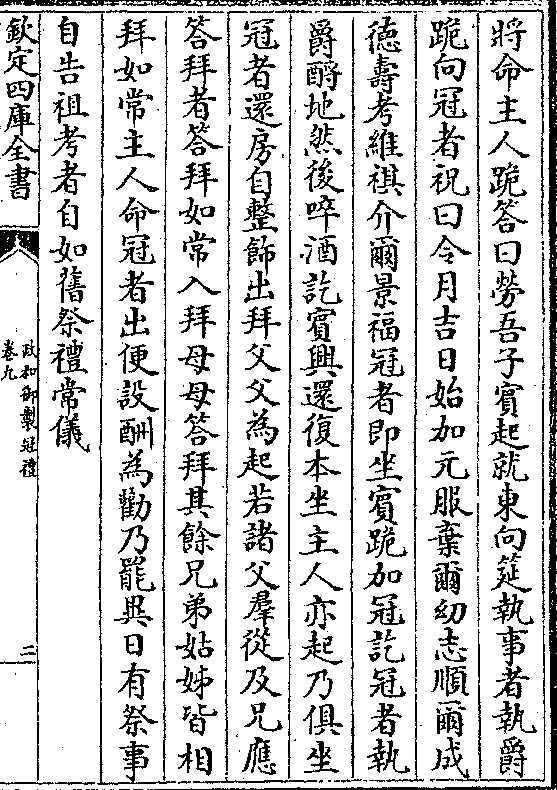 將命主人跪答曰勞吾子賓起就東向筵執事者執爵
跪向冠者祝曰令月吉日始加元服棄爾幼志順爾成
徳壽考維祺介爾景福冠者即坐賓跪加冠訖冠者執
爵酹地然後啐酒訖賓興還復本坐主人亦起乃俱坐
冠者還房自整飾出拜父父為起若諸父羣從及兄應
答拜者答拜如常入拜母母答拜其餘兄弟姑姊皆相
拜如常主人命冠者出便設酬為勸乃罷異日有祭事
自告祖考者自如舊祭禮常儀
欽定四庫全書
政和御製冠禮
卷九
二